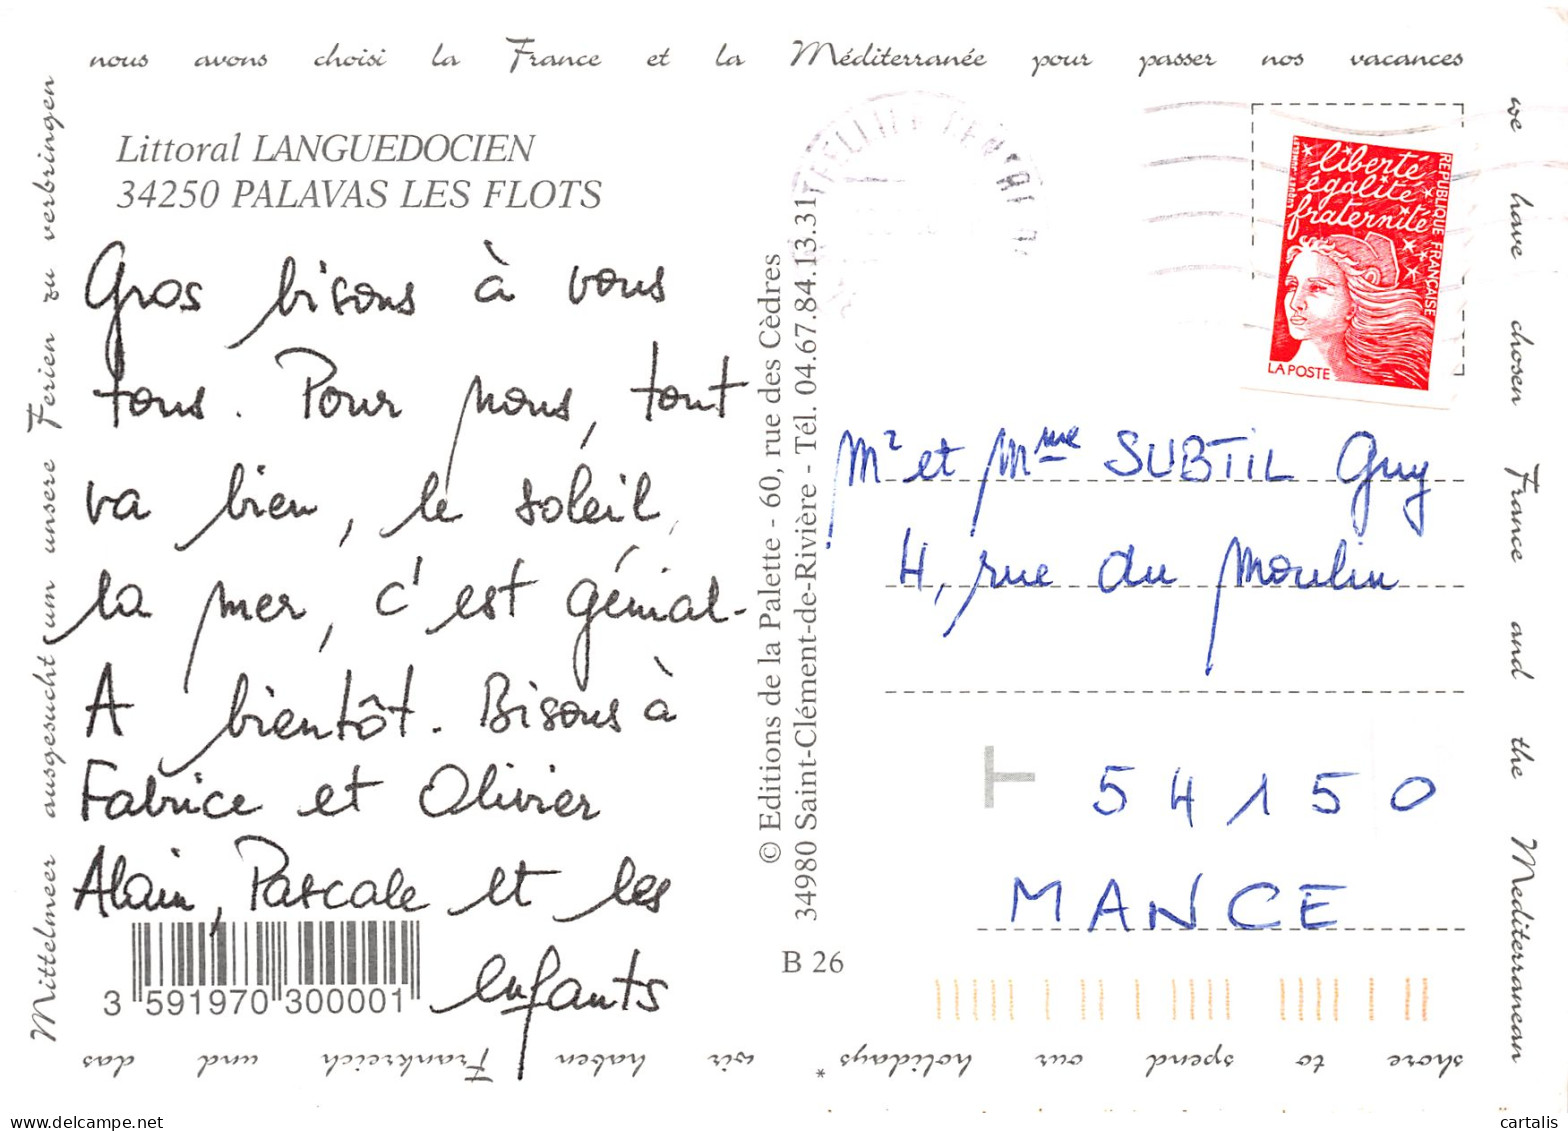 nous avons choisi la France et la Méditerranée pour passer nos vacances
we have chosen France and the Mediterranean
shore to spend our holidays *
wir haben Frankreich und das
Mittelmeer ausgesucht um unsere Ferien zu verbringen
Littoral LANGUEDOCIEN
34250 PALAVAS LES FLOTS
Gros bisous à vous
tous. Pour nous, tout
va bien, le soleil,
la mer, c'est génial.
A bientôt. Bisous à
Fabrice et Olivier
Alain, Pascale et les
enfants
3 591970 300001
© Editions de la Palette - 60, rue des Cèdres
34980 Saint-Clément-de-Rivière - Tél. 04.67.84.13.31
B 26
liberté
égalité
fraternité
REPUBLIQUE FRANÇAISE
LA POSTE
Mr et Mme SUBTIL Guy
4, rue du Moulin
54150
MANCE
cartalis